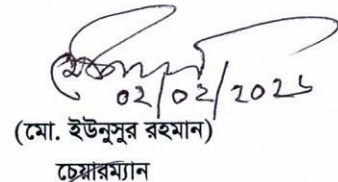 02/02/2026
(মো. ইউনুসুর রহমান)
চেয়ারম্যান